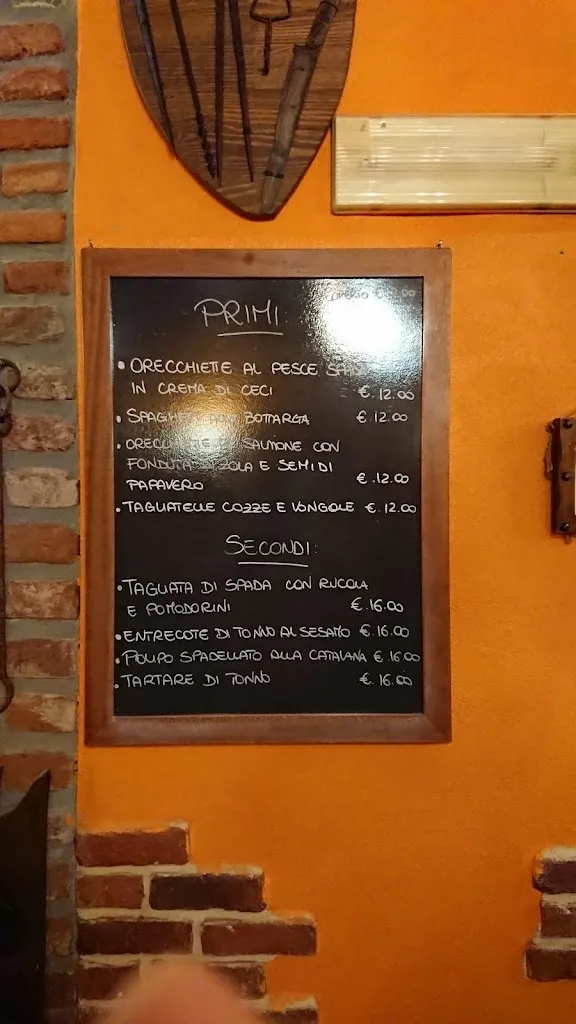 PRIMI:
• ORECCHIETTE AL PESCE SPADA
IN CREMA DI CECI €.12.00
• SPAGHETTI BOTTARGA €.12.00
• ORECCHIETTE SALMONE CON
FONDUTA E SEMI DI
PAPAVERO €.12.00
• TAGLIATELLE COZZE E VONGOLE €.12.00
SECONDI:
• TAGLIATA DI SPADA CON RUCOLA
E POMODORINI €.16.00
• ENTRECOTE DI TONNO AL SESAMO €.16.00
• POLIPO SPADELLATO ALLA CATALANA €.16.00
• TARTARE DI TONNO €.16.00